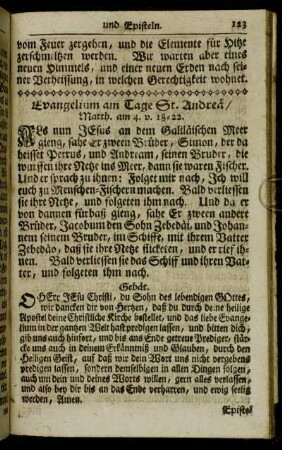 und Episteln. 123
vom Feuer zergehen, und die Elemente für Hitze
zerschmeltzen werden. Wir warten aber eines
neuen Himmels, und einer neuen Erden nach sei-
ner Verheissung, in welchen Gerechtigkeit wohnet.
Evangelium am Tage St. Andreä/
Matth. am 4. v. 18-22.
Als nun JEsus an dem Galiläischen Meer
gieng, sahe Er zween Brüder, Simon, der da
heisset Petrus, und Andream, seinen Bruder, die
wurffen ihre Netze ins Meer, dann sie waren Fischer.
Und er sprach zu ihnen: Folget mir nach, Ich will
euch zu Menschen-Fischern machen. Bald verliessen
sie ihre Netze, und folgeten ihm nach. Und da er
von dannen fürbaß gieng, sahe Er zween andere
Brüder, Jacobum den Sohn Zebedäi, und Johan-
nem seinen Bruder, im Schiffe, mit ihrem Vatter
Zebedäo, daß sie ihre Netze flicketen, und er rief ih-
nen. Bald verliessen sie das Schiff und ihren Vat-
ter, und folgeten ihm nach.
Gebät.
OHErr JEsu Christi, du Sohn des lebendigen GOttes,
wir dancken dir von Hertzen, daß du durch deine heilige
Apostel deine Christliche Kirche bestellet, und das liebe Evange-
lium in der gantzen Welt hast predigen lassen, und bitten dich,
gib uns auch hinfort, und bis ans Ende getreue Prediger, stär-
cke uns auch in deinem Erkänntniß und Glauben, durch den
Heiligen Geist, auf daß wir dein Wort uns nicht vergebens
predigen lassen, sondern demselbigen in allen Dingen folgen,
auch um dein und deines Worts willen, gern alles verlassen,
und also bey dir bis an das Ende verharren, und ewig seelig
werden, Amen.
Epistel